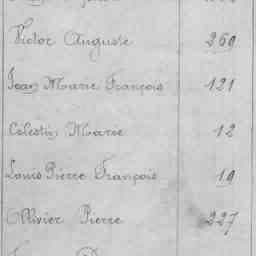 Victor Auguste 269
Jean Marie François 121
Célestin Marie 12
Louis Pierre François 19
Ollivier Pierre 227